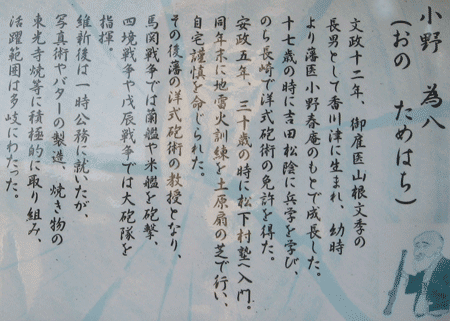 小野 為八
(おの ためはち)
文政十二年、御雇医山根文季の
長男として香川津に生まれ、幼時
より藩医小野春庵のもとで成長した。
十七歳の時に吉田松陰に兵学を学び、
のち長崎で洋式砲術の免許を得た。
安政五年、三十歳の時に松下村塾へ入門。
同年末に地雷火訓練を土原扇の芝で行い、
自宅謹慎を命じられた。
その後藩の洋式砲術の教授となり、
馬関戦争では蘭艦や米艦を砲撃、
四境戦争や戊辰戦争では大砲隊を
指揮。
維新後は一時公務に就いたが、
写真術やバターの製造、焼き物の
東光寺焼等に積極的に取り組み、
活躍範囲は多岐にわたった。